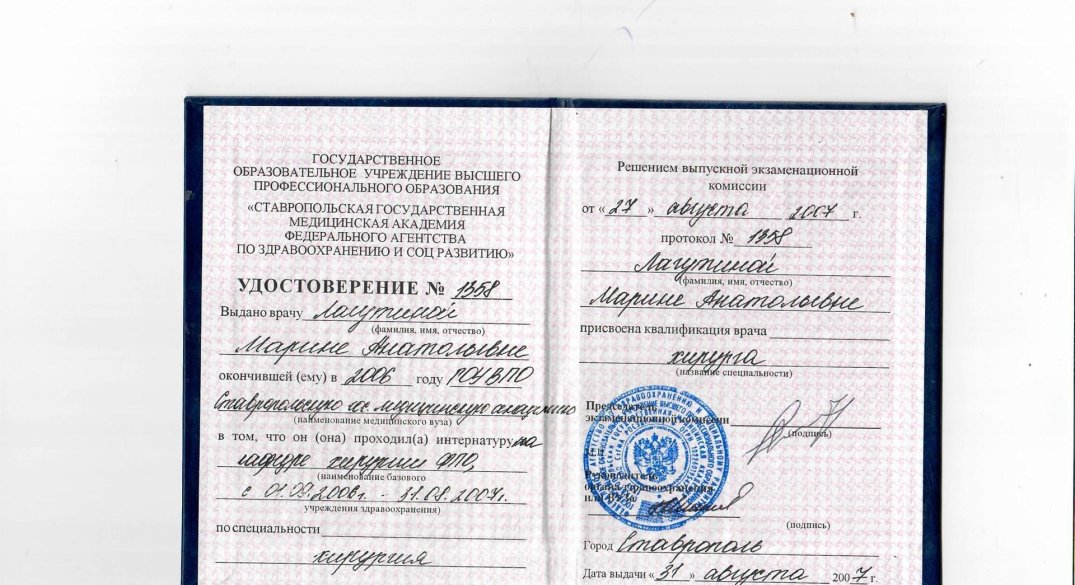 ГОСУДАРСТВЕННОЕ
ОБРАЗОВАТЕЛЬНОЕ УЧРЕЖДЕНИЕ ВЫСШЕГО
ПРОФЕССИОНАЛЬНОГО ОБРАЗОВАНИЯ
«СТАВРОПОЛЬСКАЯ ГОСУДАРСТВЕННАЯ
МЕДИЦИНСКАЯ АКАДЕМИЯ
ФЕДЕРАЛЬНОГО АГЕНТСТВА
ПО ЗДРАВООХРАНЕНИЮ И СОЦ РАЗВИТИЮ»
УДОСТОВЕРЕНИЕ № 1358
Выдано врачу Лагутиной
(фамилия, имя, отчество)
Марине Анатольевне
окончившей (ему) в 2006 году ГОУ ВПО
Ставропольскую гос. медицинскую академию
(наименование медицинского вуза)
в том, что он (она) проходил(а) интернатуру на
кафедре хирургии ФПО,
(наименование базового
с 01.09.2006г. - 31.08.2007г.
учреждения здравоохранения)
по специальности
хирургия
Решением выпускной экзаменационной
комиссии
от «27» августа 2007 г.
протокол № 1358
Лагутиной
(фамилия, имя, отчество)
Марине Анатольевне
присвоена квалификация врача
хирурга
(название специальности)
Председатель
экзаменационной комиссии
(подпись)
Руководитель
органа здравоохранения
(подпись)
Город Ставрополь
Дата выдачи «31» августа 2007 г.